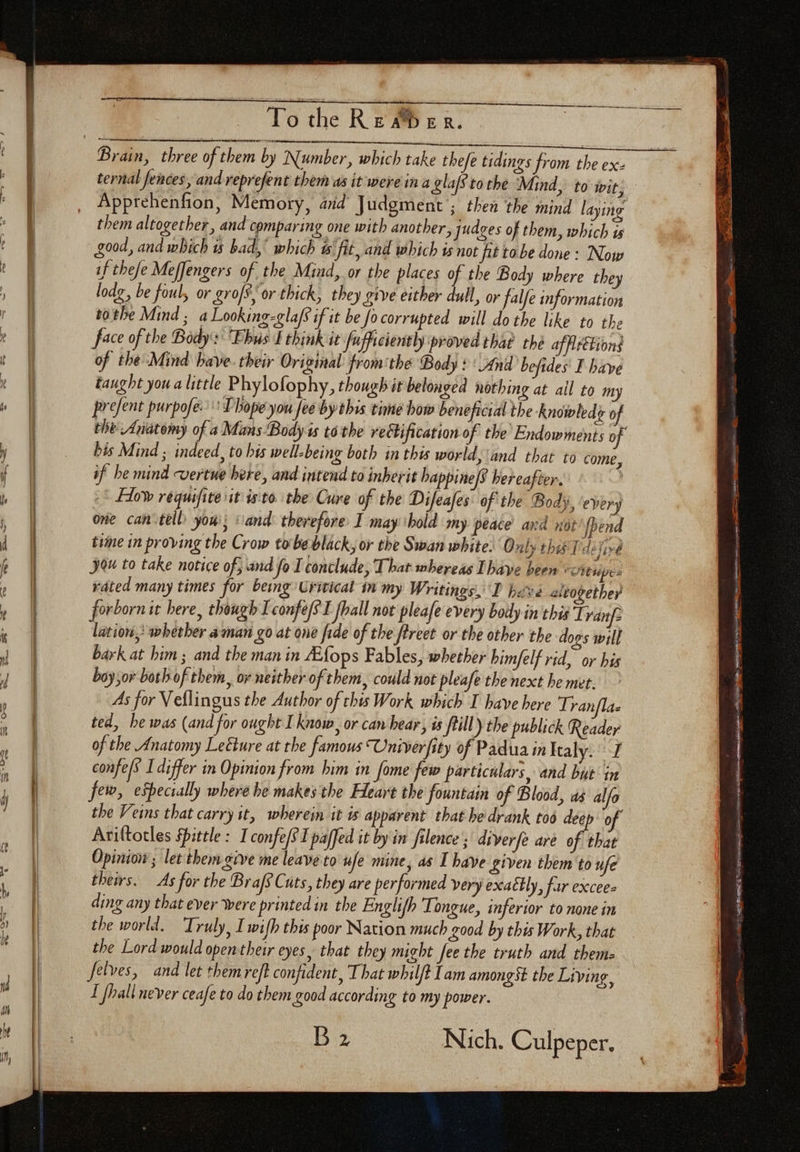 To the REABER.
Brain, three of them by Number, which take theſe tidings from the ex-
ternal ſences, and repreſent them as it were in a glaſs to the Mind, to wit,
Apprehenſion, Memory, and Judgment; then the mind laying
them altogether, and comparing one with another, judges of them, which is
good, and which is bad, which is fit, and which is not fit to be done: Now
if theſe Meſſengers of the Mind, or the places of the Body where they
lodg, be foul, or groſs, or thick, they give either dull, or falſe information
to the Mind; a Looking-glaſs if it be ſo corrupted will do the like to the
face of the Body: Thus I think it ſufficiently proved that the afflictions
of the Mind have their Original from the Body: And beſides I have
taught you a little Phyloſophy, though it belonged nothing at all to my
preſent purpoſe. I hope you ſee by this time how beneficial the knowledg of
the Anatomy of a Mans Body is to the rectification of the Endowments of
his Mind; indeed, to his well-being both in this world, and that to come,
if he mind vertue here, and intend to inherit happineſs hereafter.
How requiſite it is to the Cure of the Diſeaſes of the Body, every
one can tell you; and therefore I may hold my peace and not ſpend
time in proving the Crow to be black, or the Swan white. Only this I deſire
you to take notice of, and ſo I conclude, That whereas I have been vitupe-
rated many times for being Critical in my Writings, I have altogether
forborn it here, though I confeſs I ſhall not pleaſe every body in this Tranſ-
lation, whether a man go at one ſide of the ſtreet or the other the dogs will
bark at him; and the man in Æſops Fables, whether himſelf rid, or his
boy, or both of them, or neither of them, could not pleaſe the next he met.
As for Veſlingus the Author of this Work which I have here Tranſla-
ted, he was (and for ought I know, or can hear, is ſtill) the publick Reader
of the Anatomy Lecture at the famous Univerſity of Padua in Italy. I
confeſs I differ in Opinion from him in ſome few particulars, and but in
few, eſpecially where he makes the Heart the fountain of Blood, as alſo
the Veins that carry it, wherein it is apparent that he drank too deep of
Ariſtotles ſpittle: I confeſs I paſſed it by in ſilence; diverſe are of that
Opinion; let them give me leave to uſe mine, as I have given them to uſe
theirs. As for the Braſs Cuts, they are performed very exactly, far excee-
ding any that ever were printed in the Engliſh Tongue, inferior to none in
the world. Truly, I wiſh this poor Nation much good by this Work, that
the Lord would open their eyes, that they might ſee the truth and them-
ſelves, and let them reſt confident, That whilſt I am amongſt the Living,
I ſhall never ceaſe to do them good according to my power.
B 2 Nich. Culpeper.